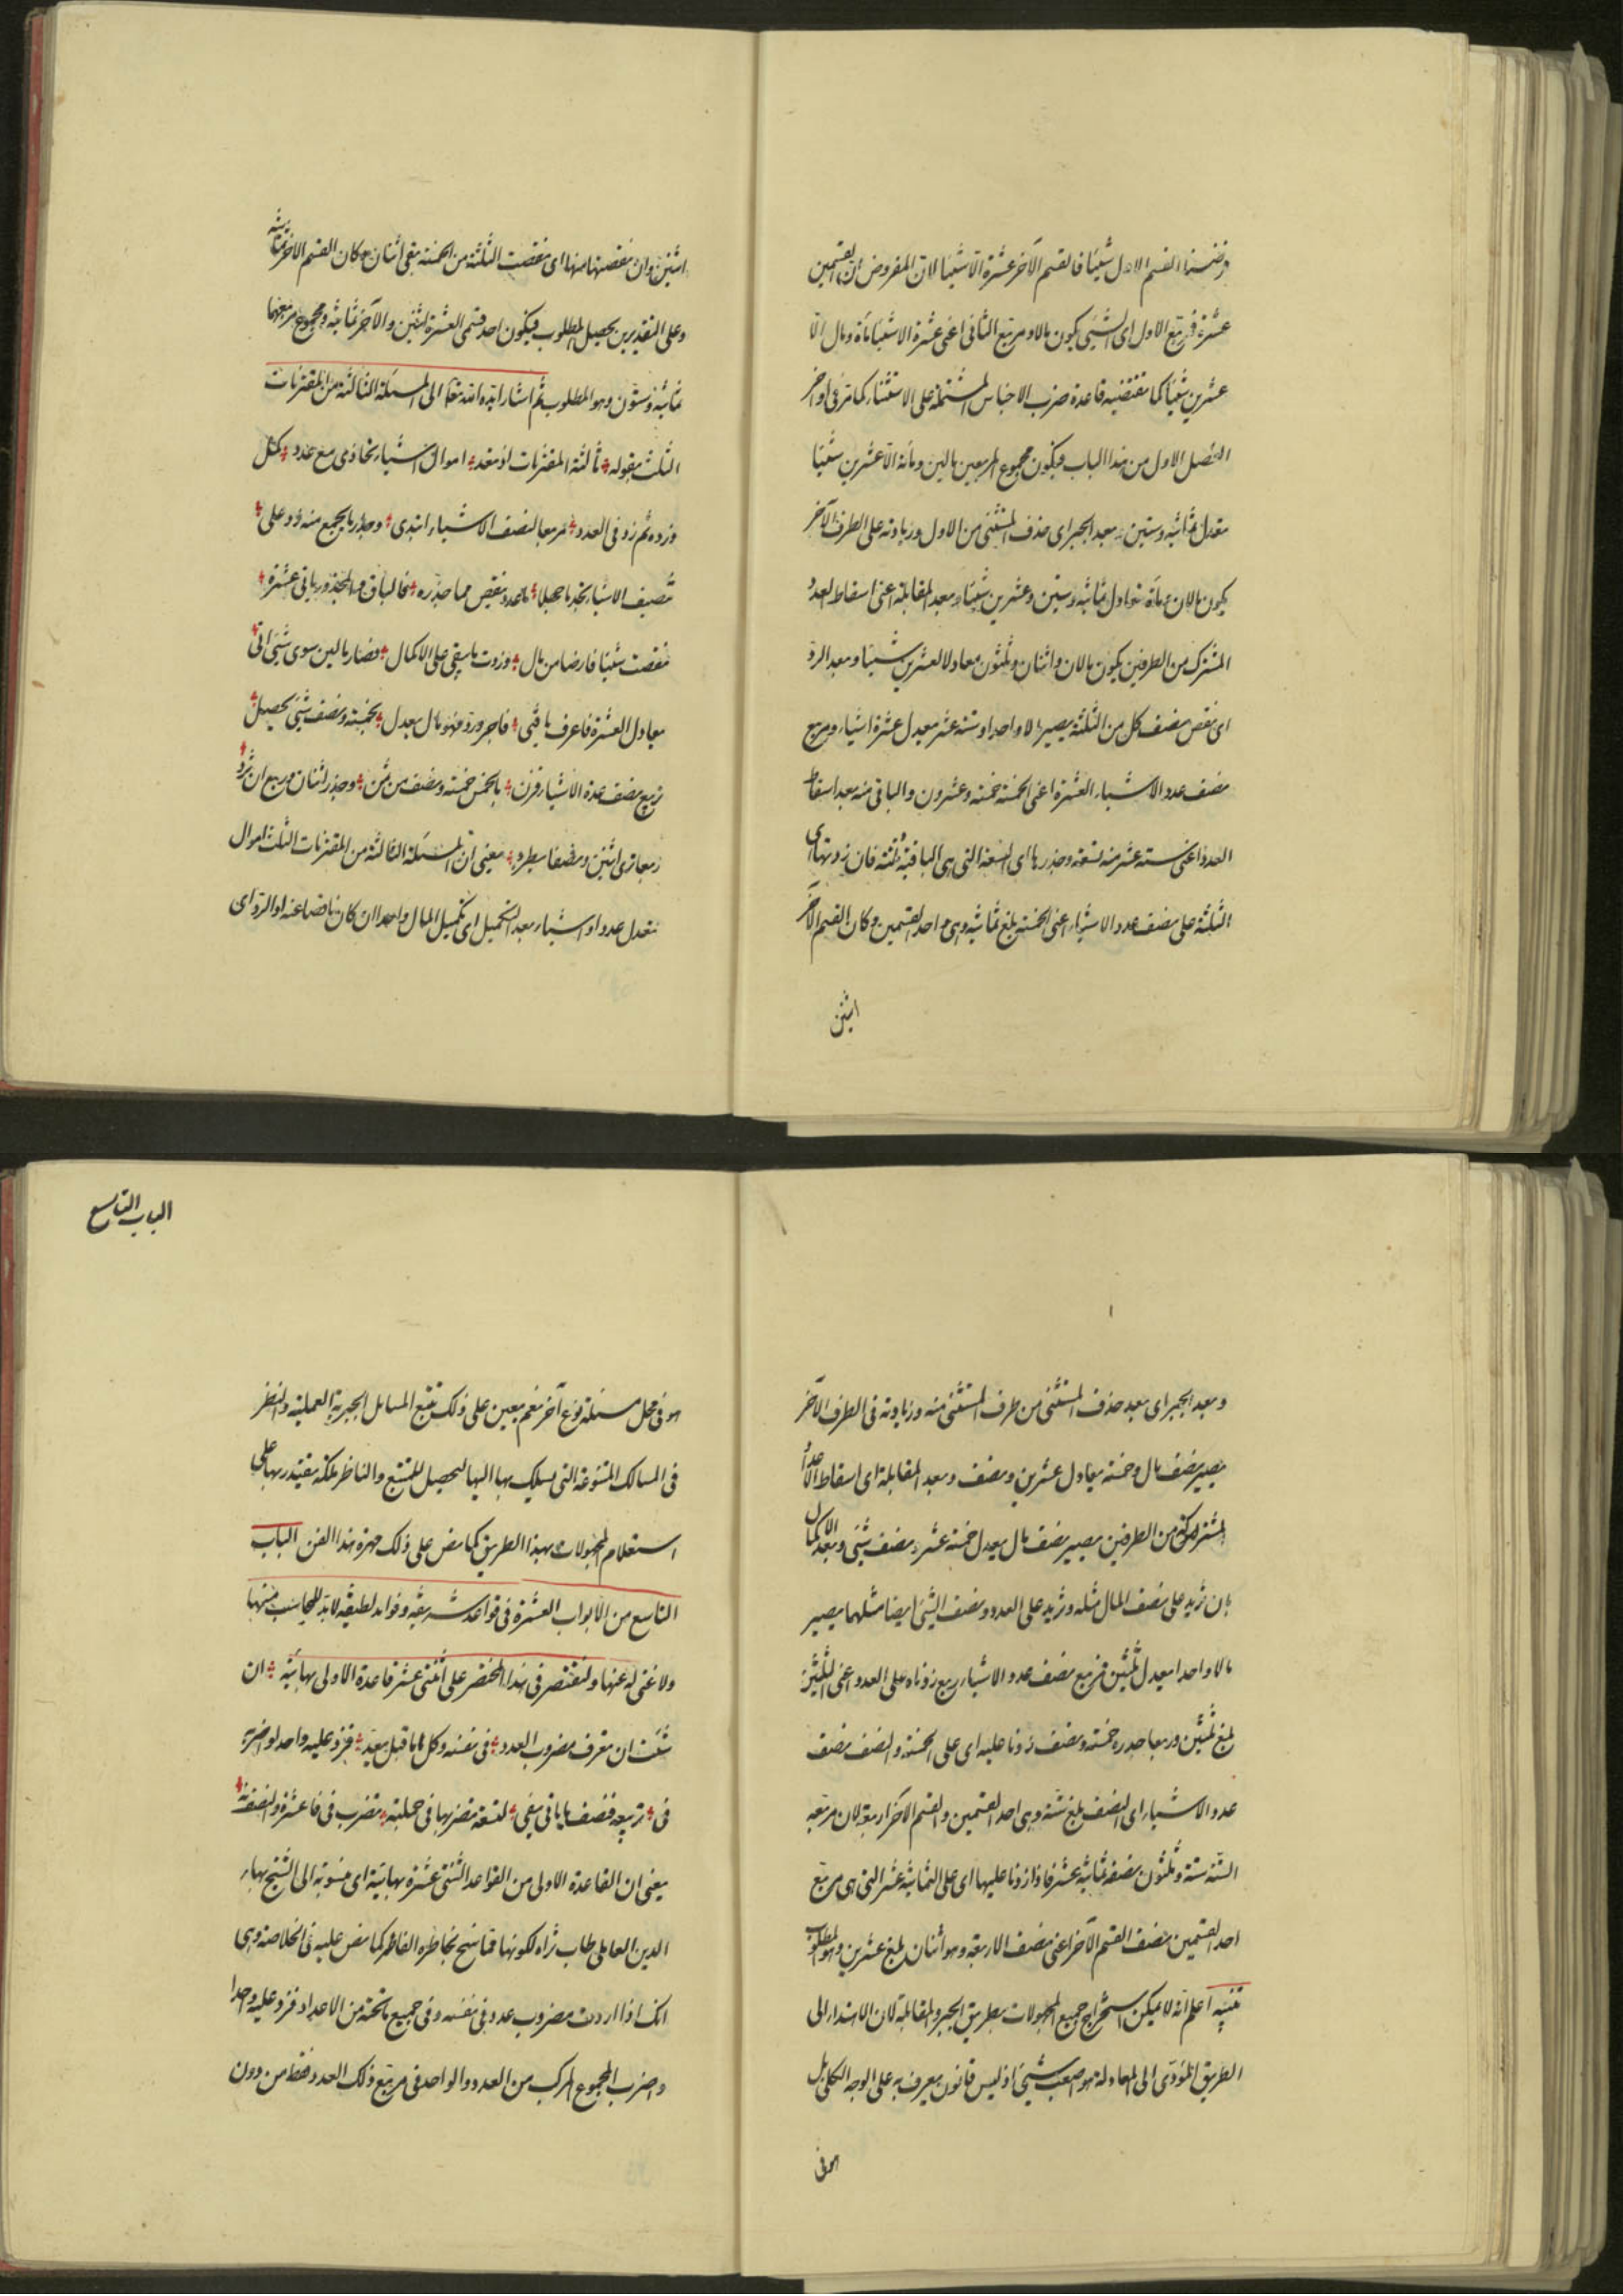 فرضنا القسم الاول شيئا فالقسم الآخر عشرة الا شيئا لان المفروض ان القسمين
عشرة فمربع الاول اى الشيئ يكون مالا ومربع الثانى اعنى عشرة الا شيئا مأة ومال الا
عشرين شيئا كما تقتضيه قاعدة ضرب الاجناس المشتملة على الاستثناء كما مر فى اواخر
الفصل الاول من هذا الباب فيكون مجموع المربعين مالين ومأة الا عشرين شيئا
تعدل ثمانية وستين وبعد الجبر اى حذف المستثنى من الاول وزيادته على الطرف الآخر
يكون مالان ومأة تعادل ثمانية وستين وعشرين شيئا وبعد المقابلة اعنى اسقاط العدد
المشترك من الطرفين يكون مالان واثنان وثلثون معادلا لعشرين شيئا وبعد الرد
اى نقص نصف كل من الثلثة يصير مالا واحدا وستة عشر يعدل عشرة اشياء ومربع
نصف عدد الاشياء العشرة اعنى الخمسة خمسة وعشرون والباقى منه بعد اسقاط
العدد اعنى ستة عشر منه تسعة وجذرها اى التسعة التى هى الباقية ثلثة فان زدتها اى
الثلثة على نصف عدد الاشياء اعنى الخمسة بلغ ثمانية وهى احد القسمين وكان القسم الآخر
اثنين
اثنين وان نقصتها منها اى نقصت الثلثة من الخمسة بقى اثنان وكان القسم الآخر ثمانية
وعلى التقديرين يحصل المطلوب فيكون احد قسمى العشرة اثنين والآخر ثمانية ومجموع مربعيهما
ثمانية وستون وهو المطلوب ثم اشار ايده الله تعالى الى المسئلة الثالثة من المقترنات
الثلث بقوله ثالثة المقترنات اذ تعد اموال اشياء تحاذى مع عدد كمثل
وزده ثم زد فى العدد مربعا لنصف الاشياء ابتدى وجذر ما يجمع منه زد على
تنصيف الاشياء تجد ما جهلا ما عدد ينقص مما جذره فالباق والمجذور باقى عشرة
نقصت شيئا فارضا من مال وزدت ما يبقى على الاكمال فصار مالين سوى شيئ اتى
معادل العشرة فاعرف يا فتى فاجبر ورد فهو مال يعدل بخمسة ونصف شيئ يحصل
ربع نصف عدة الاشياء فزن بالخمس خمسة ونصف من ثمن وجذر اثنان وربع ان تزد
ربعا ترى اثنين ونصفا يطرد يعنى ان المسئلة الثالثة من المقترنات الثلث اموال
تعدل عددا واشياء بعد التكميل اى تكميل المال واحدا ان كان ناقصا عنه او الرد اى
وبعد الجبر اى بعد حذف المستثنى من طرف المستثنى منه وزيادته فى الطرف الآخر
يصير نصف مال وخمسة يعادل عشرين ونصف وبعد المقابلة اى اسقاط الاعداد
المشتركة من الطرفين يصير نصف مال يعدل خمسة عشر ونصف شيئ وبعد الاكمال
بان تزيد على نصف المال مثله وتزيد على العدد ونصف الشيئ ايضا مثلهما يصير
مالا واحدا يعدل ثلثين فربع نصف عدد الاشياء ربع زدناه على العدد اعنى الثلثين
بلغ ثلثين وربعا جذره خمسة ونصف زدنا عليه اى على الخمسة والنصف نصف
عدد الاشياء اى النصف بلغ ستة وهى احد القسمين والقسم الآخر اربعة لان مربع
الستة ستة وثلثون نصفه ثمانية عشر فاذا زدنا عليها اى على الثمانية عشر التى هى مربع
احد القسمين نصف القسم الآخر اعنى نصف الاربعة وهو اثنان بلغ عشرين وهو المطلوب
تنبيه اعلم انه لا يمكن استخراج جميع المجهولات بطريق الجبر والمقابلة لان الاهتداء الى
الطريق المؤدى الى المعادلة هو اصعب شيئ اذ ليس قانون يعرف به على الوجه الكلى بل
هو فى
الباب التاسع
هو فى محل مسئلة نوع آخر نعم يعين على ذلك تتبع المسائل الجبرية العملية والنظر
فى المسالك المتنوعة التى يسلك بها اليها ليحصل للمتتبع والناظر ملكة يقتدر بها على
استعلام المجهولات بهذا الطريق كما نص على ذلك مهرة هذا الفن الباب
التاسع من الابواب العشرة فى قواعد شريفة وفوايد لطيفة لا بد للمحاسب منها
ولا غنى له عنها ولنقتصر فى هذا المختصر على اثنتى عشر قاعدة الاولى بهائية ان
شئت ان تعرف مضروب العدد فى نفسه وكل ما قبل يعد فزد عليه واحدا واضربه
فى تربيعه فنصف ما باقى يفى لتسعة تضربها فى جملته تضرب فى فاعشرة والنصف
يعنى ان القاعدة الاولى من القواعد الثنتى عشرة بهائية اى منسوبة الى الشيخ بهاء
الدين العاملى طاب ثراه لكونها مما سنح بخاطره الفاطر كما نص عليه فى الخلاصة وهى
انك اذا اردت مضروب عدد فى نفسه وفى جميع ما تحته من الاعداد فزد عليه واحدا
واضرب المجموع المركب من العدد والواحد فى مربع ذلك العدد فقط من دون